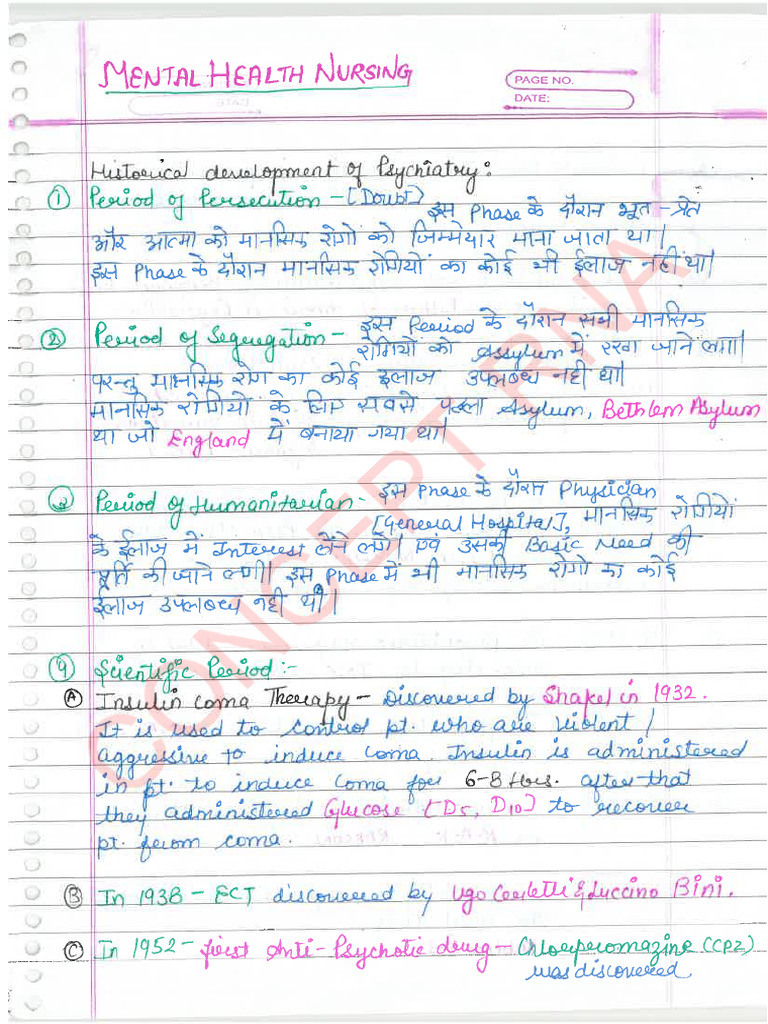 MENTAL HEALTH NURSING
PAGE NO.
DATE:
Historical development of Psychiatry:
① Period of Persecution - [Doubt] इस Phase के दौरान भूत - प्रेत
और आत्मा को मानसिक रोगों को जिम्मेयार माना जाता था।
इस Phase के दौरान मानसिक रोगियों का कोई भी ईलाज नहीं था।
② Period of Segregation - इस Period के दौरान सभी मानसिक
रोगियों को Asylum में रखा जाने लगा।
परन्तु मानसिक रोग का कोई इलाज उपलब्ध नही था।
मानसिक रोगियों के लिए सबसे पहला Asylum, Bethlem Asylum
था जो England में बनाया गया था।
③ Period of Humanitarian - इस Phase के दौरान Physician
[General Hospital], मानसिक रोगियों
के ईलाज में Interest लेने लगे। एवं उसकी Basic Need की
पूर्ति की जाने लगी। इस Phase में भी मानसिक रोगो का कोई
ईलाज उपलब्ध नही था।
④ Scientific Period :-
Ⓐ Insulin coma Therapy - Discovered by Shakel in 1932.
It is used to control pt. who are violent /
aggressive to induce coma. Insulin is administered
in pt. to induce coma for 6-8 Hrs. after that
they administered Glucose [D5, D10] to recover
pt. from coma.
Ⓑ In 1938 - ECT discovered by Ugo Cerletti & Luccino Bini.
Ⓒ In 1952 - first Anti - Psychotic drug - Chlorpromazine (CPZ)
was discovered
CONCEPT RNA